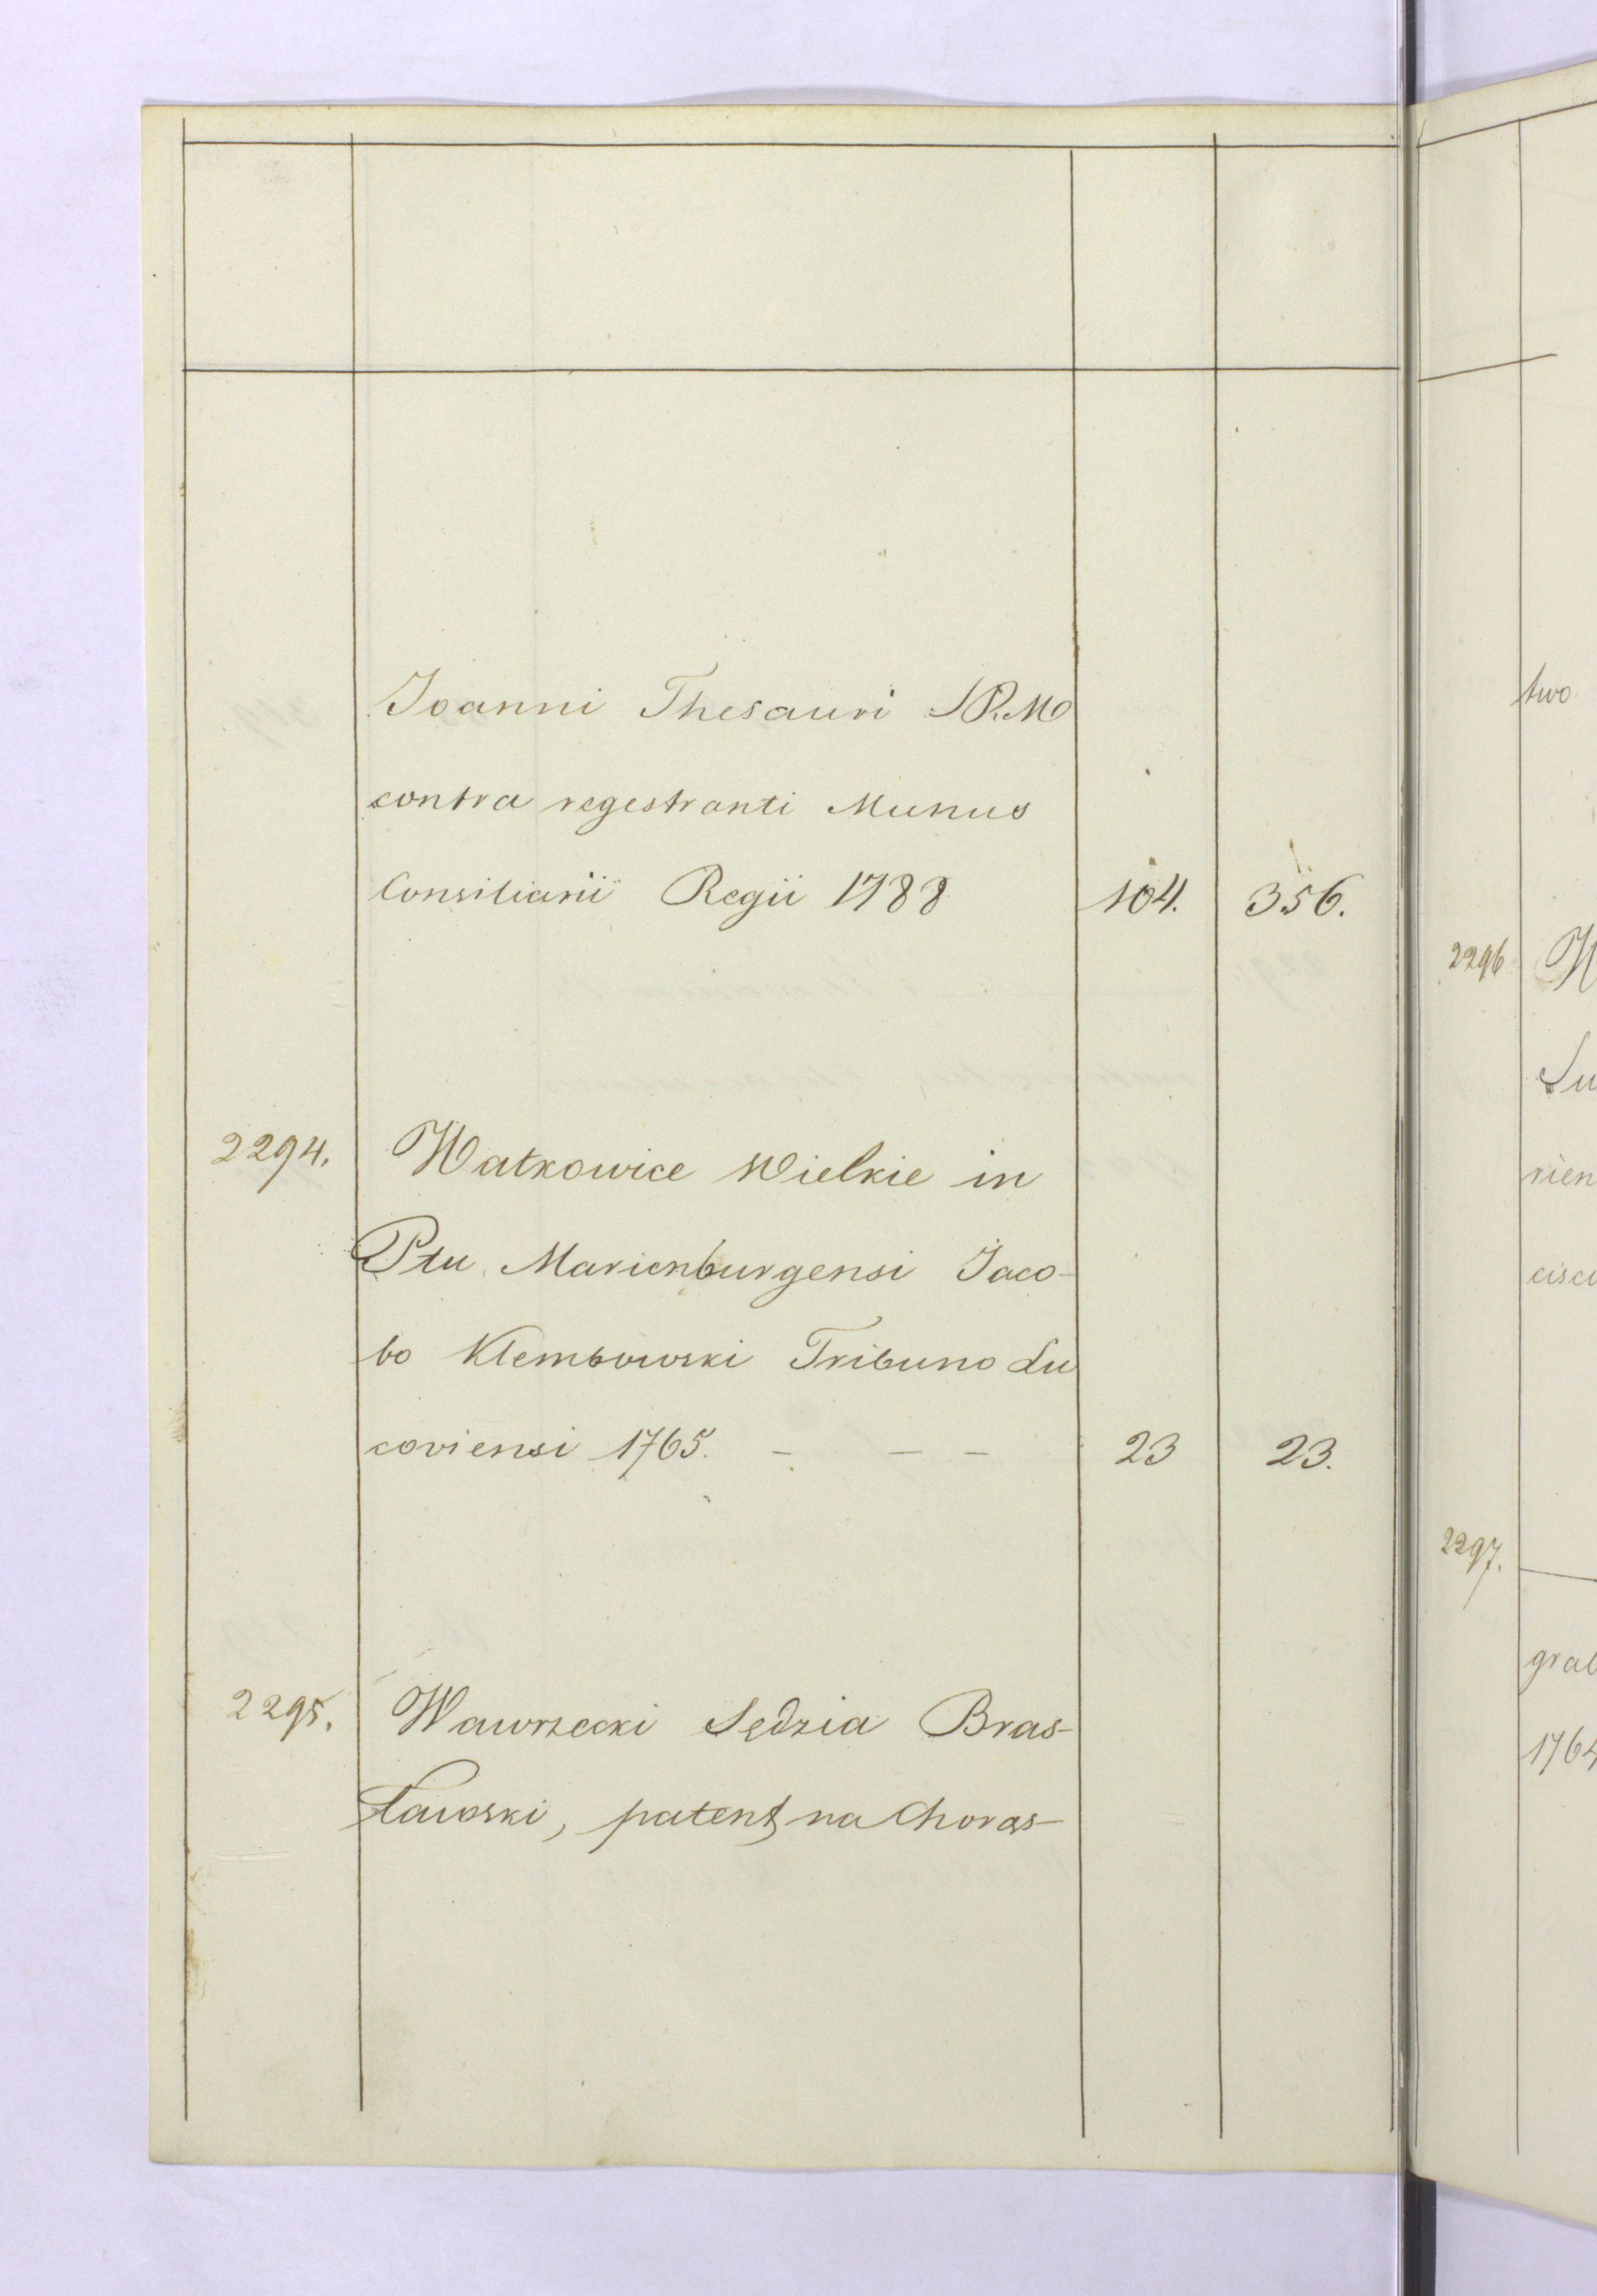 Joanni Thesauri SR.M
contra regestranti Munus
Consiliarii Regii 1788 104. 356.
2294. Watkowice Wielkie in
Ptu Marienburgensi Jaco-
bo Klembowski Tribuno Lu
coviensi 1765. - - - 23 23.
2295. Wawrzecki Sędzia Bras-
ławski, patent na Chorąs-
two
2296
Lu
rien
cisc
2297.
grab
1764